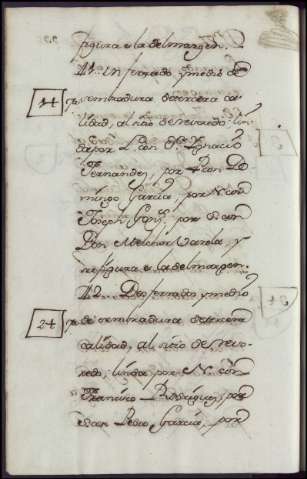 figura e la del margen.
41. Un ferrado y medio de
14 sembradura de tercera ca-
lidad, al sitio de Nevoredo: lin-
da por L. con Ignacio
Fernandez, por P. con Do-
mingo Garcia, por N. con
Joseph por S. con
Don Melchor Varela y
su figura e la del margen.
42. Dos ferrados y medio
24 de sembradura de tercera
calidad, al sitio de Nevo-
redo; linda por N. con
Francisco Rodriguez, por
con Pedro Garcia, por